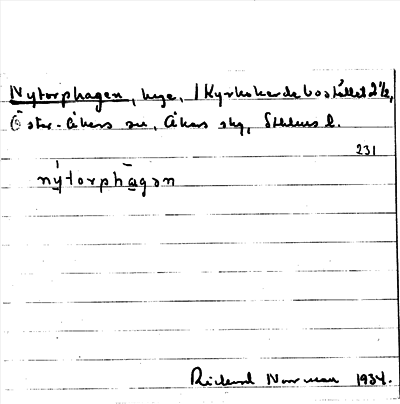 Nytorphagen, hage, 1 Kyrkoherdebostället 2 1/2,
Öster-Åkers sn, Åkers skg, Sthlms l.
231
nýtorphāgən
Rickard Norrman 1934.